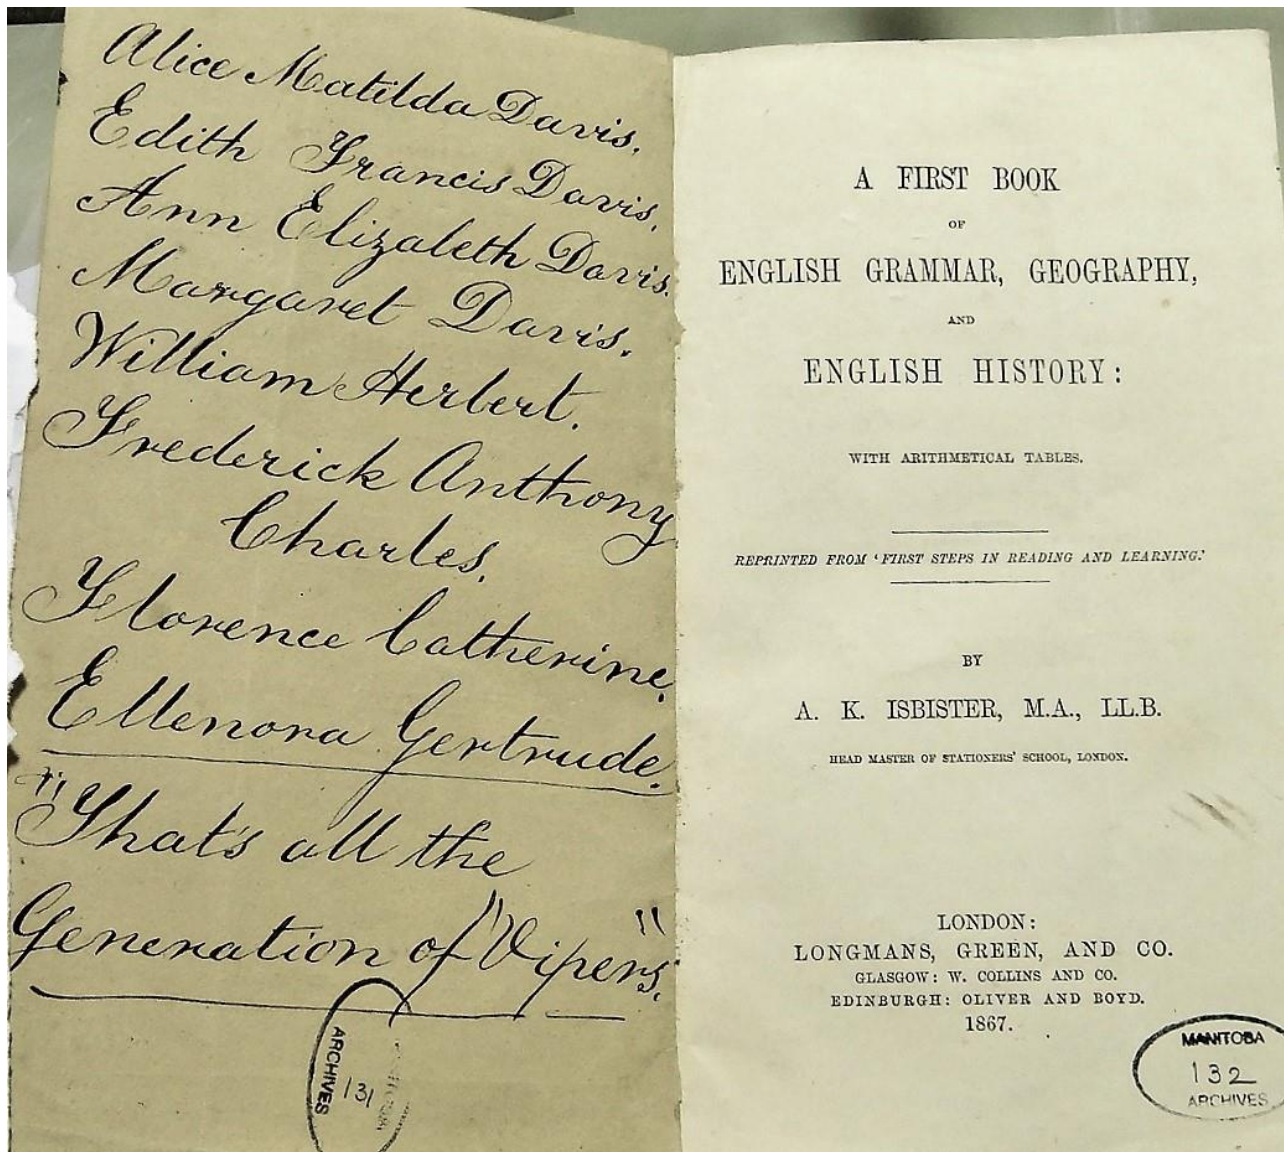 Alice Matilda Davis.
Edith Francis Davis.
Ann Elizabeth Davis.
Margaret Davis.
William Herbert.
Frederick Anthony
Charles.
Florence Catherine.
Ellenora Gertrude.
"That's all the
Generation of "Vipers."
ARCHIVES
131
A FIRST BOOK
OF
ENGLISH GRAMMAR, GEOGRAPHY,
AND
ENGLISH HISTORY:
WITH ARITHMETICAL TABLES.
REPRINTED FROM 'FIRST STEPS IN READING AND LEARNING.'
BY
A. K. ISBISTER, M.A., LL.B.
HEAD MASTER OF STATIONERS' SCHOOL, LONDON.
LONDON:
LONGMANS, GREEN, AND CO.
GLASGOW: W. COLLINS AND CO.
EDINBURGH: OLIVER AND BOYD.
1867.
MANITOBA
132
ARCHIVES